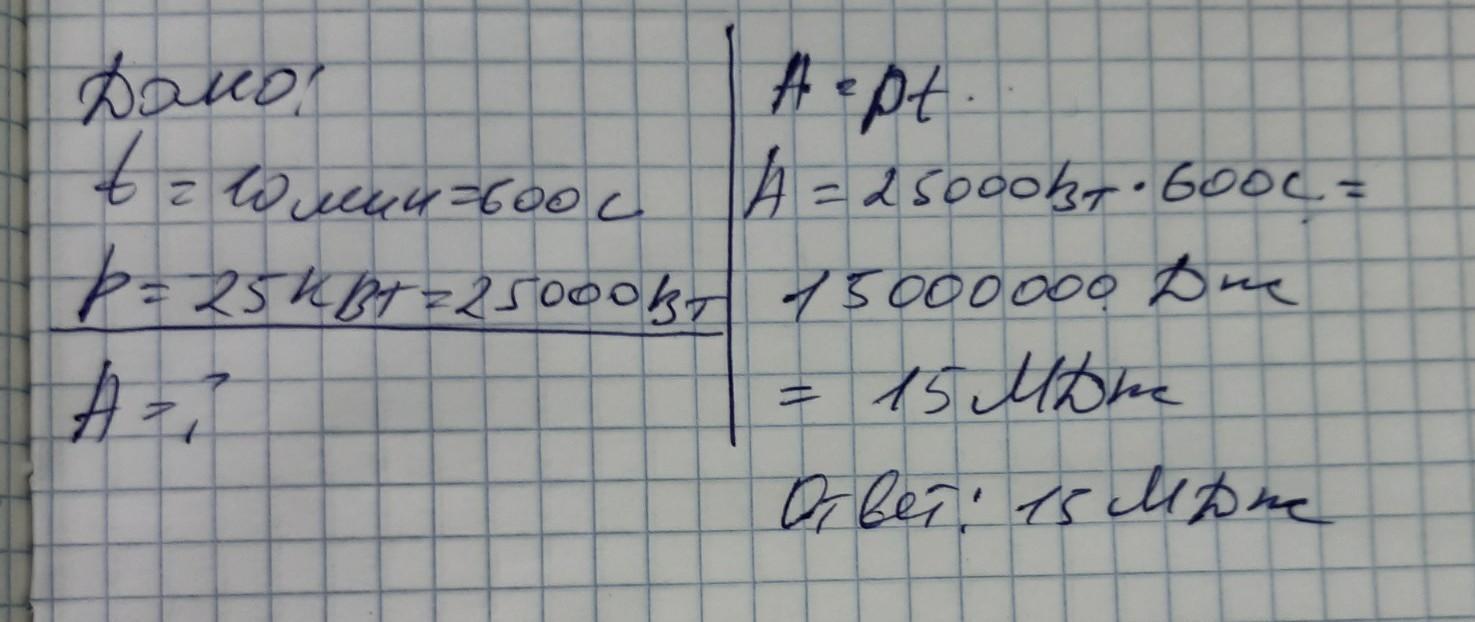 Дано:
t = 10 мин = 600 с
P = 25 кВт = 25000 Вт
A = ?
A = Pt.
A = 25000 Вт · 600 с =
15000000 Дж
= 15 МДж
Ответ: 15 МДж